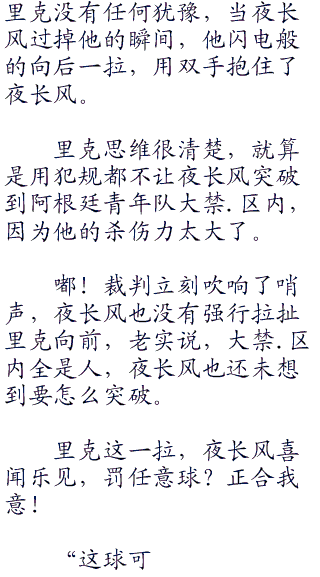 里克没有任何犹豫，当夜长
风过掉他的瞬间，他闪电般
的向后一拉，用双手抱住了
夜长风。
里克思维很清楚，就算
是用犯规都不让夜长风突破
到阿根廷青年队大禁.区内，
因为他的杀伤力太大了。
嘟！裁判立刻吹响了哨
声，夜长风也没有强行拉扯
里克向前，老实说，大禁.区
内全是人，夜长风也还未想
到要怎么突破。
里克这一拉，夜长风喜
闻乐见，罚任意球？正合我
意！
“这球可